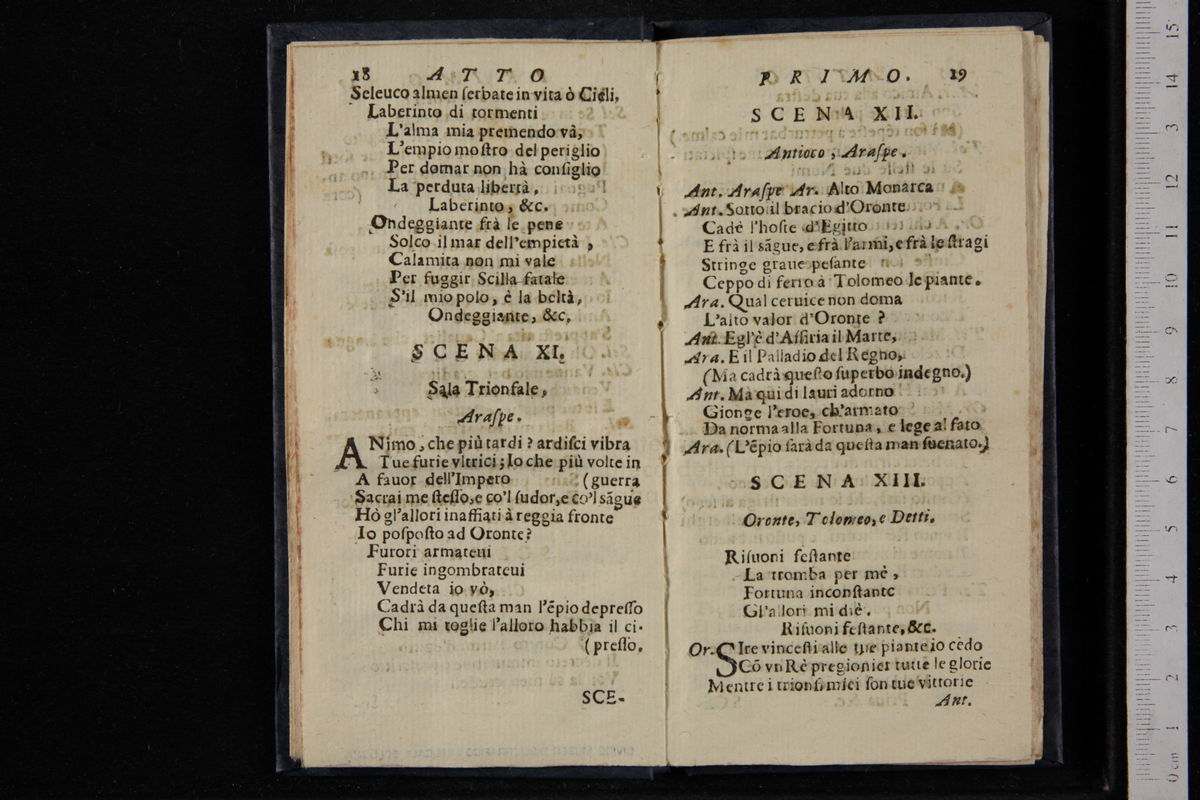 18 ATTO
Seleuco almen ſerbate in vita ò Cieli,
Laberinto di tormenti
L'alma mia premendo và,
L'empio moſtro del periglio
Per domar non hà conſiglio
La perduta libertà,
Laberinto, &c.
Ondeggiante frà le pene
Solco il mar dell'empietà,
Calamita non mi vale
Per fuggir Scilla fatale
S'il mio polo, è la beltà,
Ondeggiante, &c,
SCENA XI.
Sala Trionfale,
Araſpe.
ANimo, che più tardi? ardiſci vibra
Tue furie vltrici; Io che più volte in
A fauor dell'Impero (guerra
Sacrai me ſteſſo, e co'l ſudor, e co'l sãgue
Hò gl'allori inaffiati à reggia fronte
Io poſpoſto ad Oronte?
Furori armateui
Furie ingombrateui
Vendeta io vò,
Cadrà da queſta man l'ẽpio depreſſo
Chi mi toglie l'alloro habbia il ci-
(preſſo.
SCE-
PRIMO. 19
SCENA XII.
Antioco, Araſpe.
Ant. Araſpe Ar. Alto Monarca
Ant. Sotto il bracio d'Oronte
Cadè l'hoſte d'Egitto
E frà il sãgue, e frà l'armi, e frà le ſtragi
Stringe graue peſante
Ceppo di ferro à Tolomeo le piante.
Ara. Qual ceruice non doma
L'alto valor d'Oronte?
Ant. Egl'è d'Aſſiria il Marte,
Ara. E il Palladio del Regno,
(Ma cadrà queſto ſuperbo indegno.)
Ant. Mà qui di lauri adorno
Gionge l'eroe, ch'armato
Da norma alla Fortuna, e lege al fato
Ara. (L'ẽpio ſarà da queſta man ſuenato.)
SCENA XIII.
Oronte, Tolomeo, e Detti.
Riſuoni feſtante
La tromba per mè,
Fortuna inconſtante
Gl'allori mi diè.
Riſuoni feſtante, &c.
Or. SIre vinceſti alle tue piante io cedo
Cõ vn Rè pregionier tutte le glorie
Mentre i trionfi miei ſon tue vittorie
Ant.